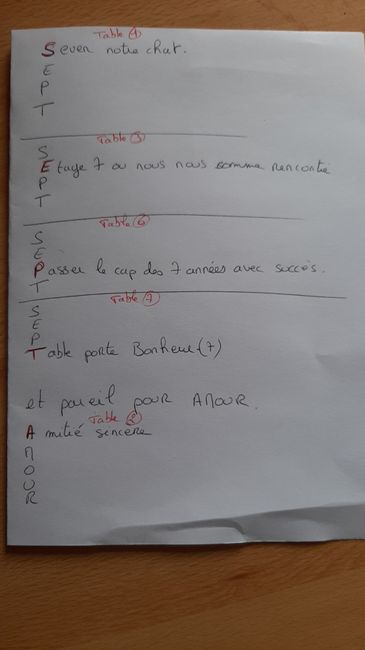 Table 1
Seven notre chat.
E
P
T
Table 5
S
Etage 7 ou nous nous somme rencontré
P
T
Table 6
S
E
Passer le cap des 7 années avec succès.
T
Table 7
S
E
P
Table porte Bonheur (7)
et pareil pour AMOUR.
Table 2
Amitié sincère
M
O
U
R